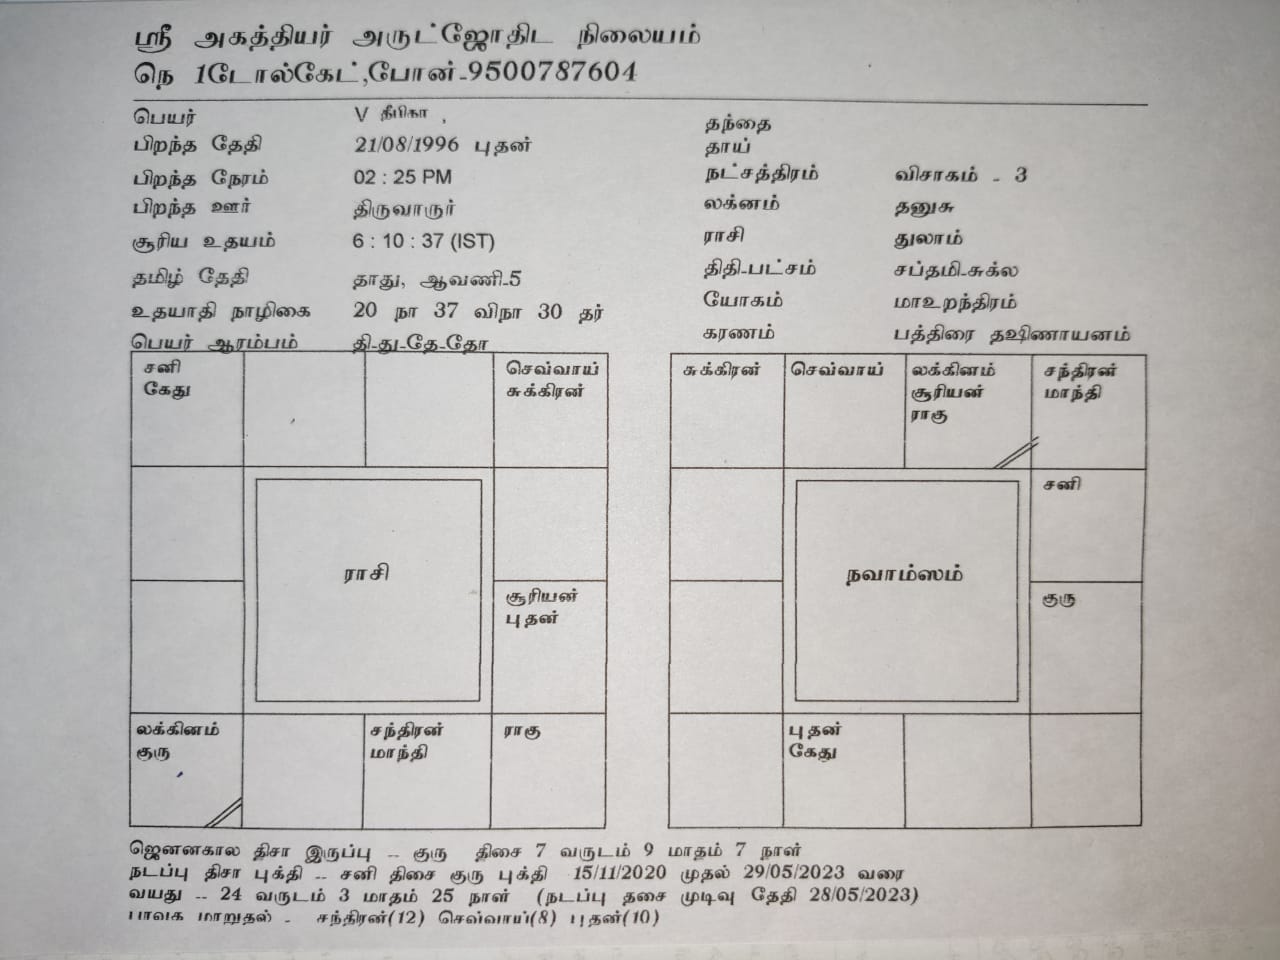 ஸ்ரீ அகத்தியர் அருட்ஜோதிட நிலையம்
நெ 1டோல்கேட்,போன்-9500787604
பெயர் V தீபிகா
பிறந்த தேதி 21/08/1996 புதன்
பிறந்த நேரம் 02 : 25 PM
பிறந்த ஊர் திருவாரூர்
சூரிய உதயம் 6 : 10 : 37 (IST)
தமிழ் தேதி தாது, ஆவணி-5
உதயாதி நாழிகை 20 நா 37 விநா 30 தர்
பெயர் ஆரம்பம் தி-து-தே-தோ
தந்தை
தாய்
நட்சத்திரம் விசாகம் - 3
லக்னம் தனுசு
ராசி துலாம்
திதி-பட்சம் சப்தமி-சுக்ல
யோகம் மாஉறந்திரம்
கரணம் பத்திரை தக்ஷிணாயனம்
சனி
கேது
செவ்வாய்
சுக்கிரன்
ராசி
சூரியன்
புதன்
லக்கினம்
குரு
சந்திரன்
மாந்தி
ராகு
சுக்கிரன்
செவ்வாய்
லக்கினம்
சூரியன்
ராகு
சந்திரன்
மாந்தி
சனி
நவாம்ஸம்
குரு
புதன்
கேது
ஜெனனகால திசா இருப்பு -- குரு திசை 7 வருடம் 9 மாதம் 7 நாள்
நடப்பு திசா புக்தி -- சனி திசை குரு புக்தி 15/11/2020 முதல் 29/05/2023 வரை
வயது -- 24 வருடம் 3 மாதம் 25 நாள் (நடப்பு தசை முடிவு தேதி 28/05/2023)
பாவக மாறுதல் - சந்திரன்(12) செவ்வாய்(8) புதன்(10)